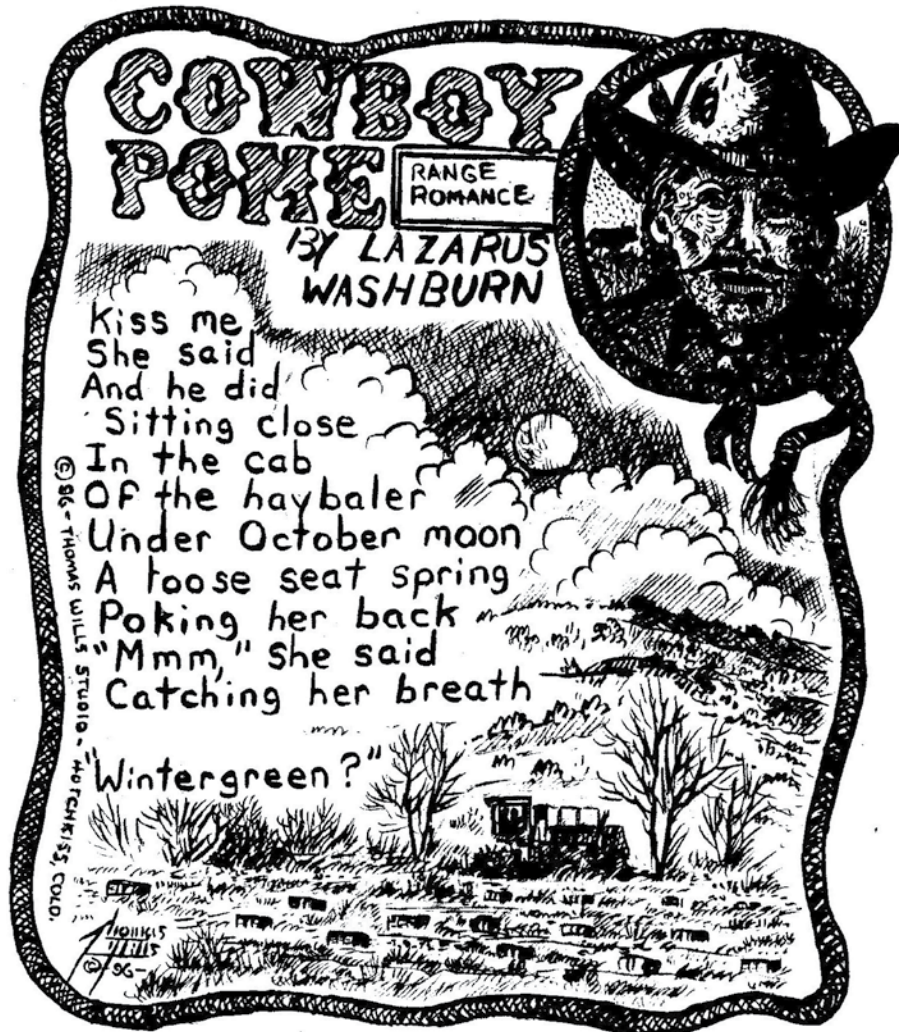 COWBOY
POME
RANGE
ROMANCE
BY LAZARUS
WASHBURN
Kiss me,
She said
And he did
Sitting close
In the cab
Of the haybaler
Under October moon
A loose seat spring
Poking her back
"Mmm," She said
Catching her breath
"Wintergreen?"
© 96 - THOMAS WILLS STUDIO - HOTCHKISS, COLO.
© -96-